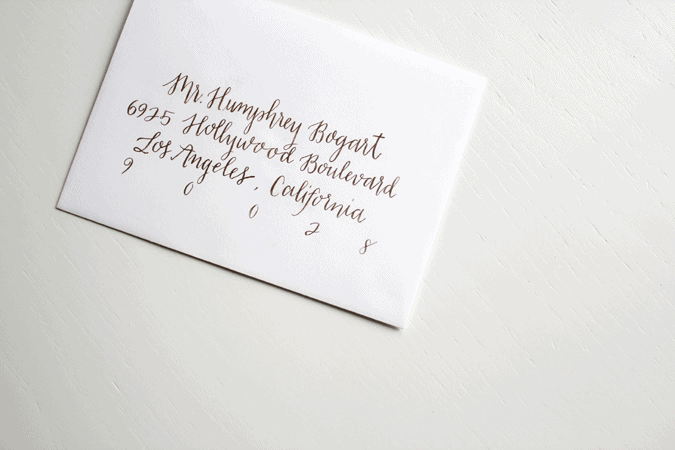 Mr. Humphrey Bogart
6925 Hollywood Boulevard
Los Angeles, California
9 0 0 2 8